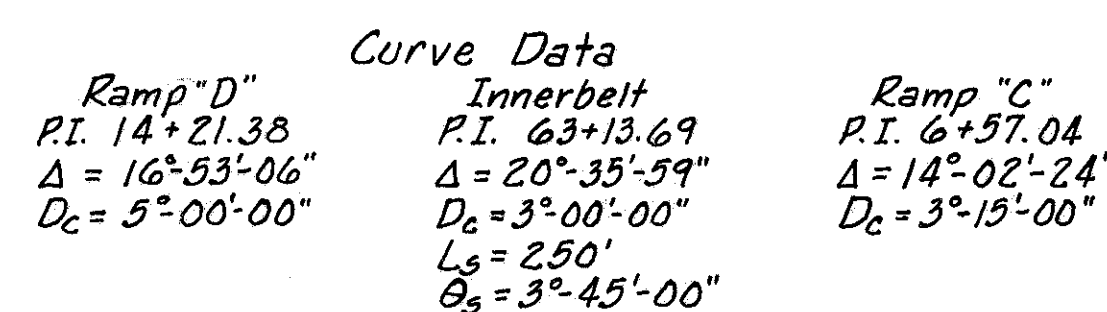 Curve Data
Ramp "D"
P.I. 14+21.38
Δ = 16°-53'-06"
Dc = 5°-00'-00"
Innerbelt
P.I. 63+13.69
Δ = 20°-35'-59"
Dc = 3°-00'-00"
Ls = 250'
θs = 3°-45'-00"
Ramp "C"
P.I. 6+57.04
Δ = 14°-02'-24'
Dc = 3°-15'-00"